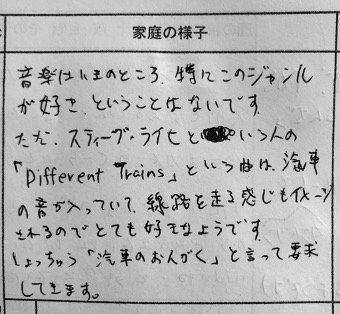 家庭の様子
音楽はいまのところ、特にこのジャンル
が好き、ということはないです。
ただ、スティーヴ・ライヒと いう人の
「Different Trains」という曲は、汽車
の音が入っていて、線路を走る感じもイメージ
されるのでとても好きなようです。
しょっちゅう「汽車のおんがく」と言って要求
してきます。